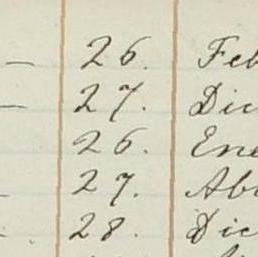 — 26. Feb
— 27. Dic
26. Ene
27. Ab
28. Dic